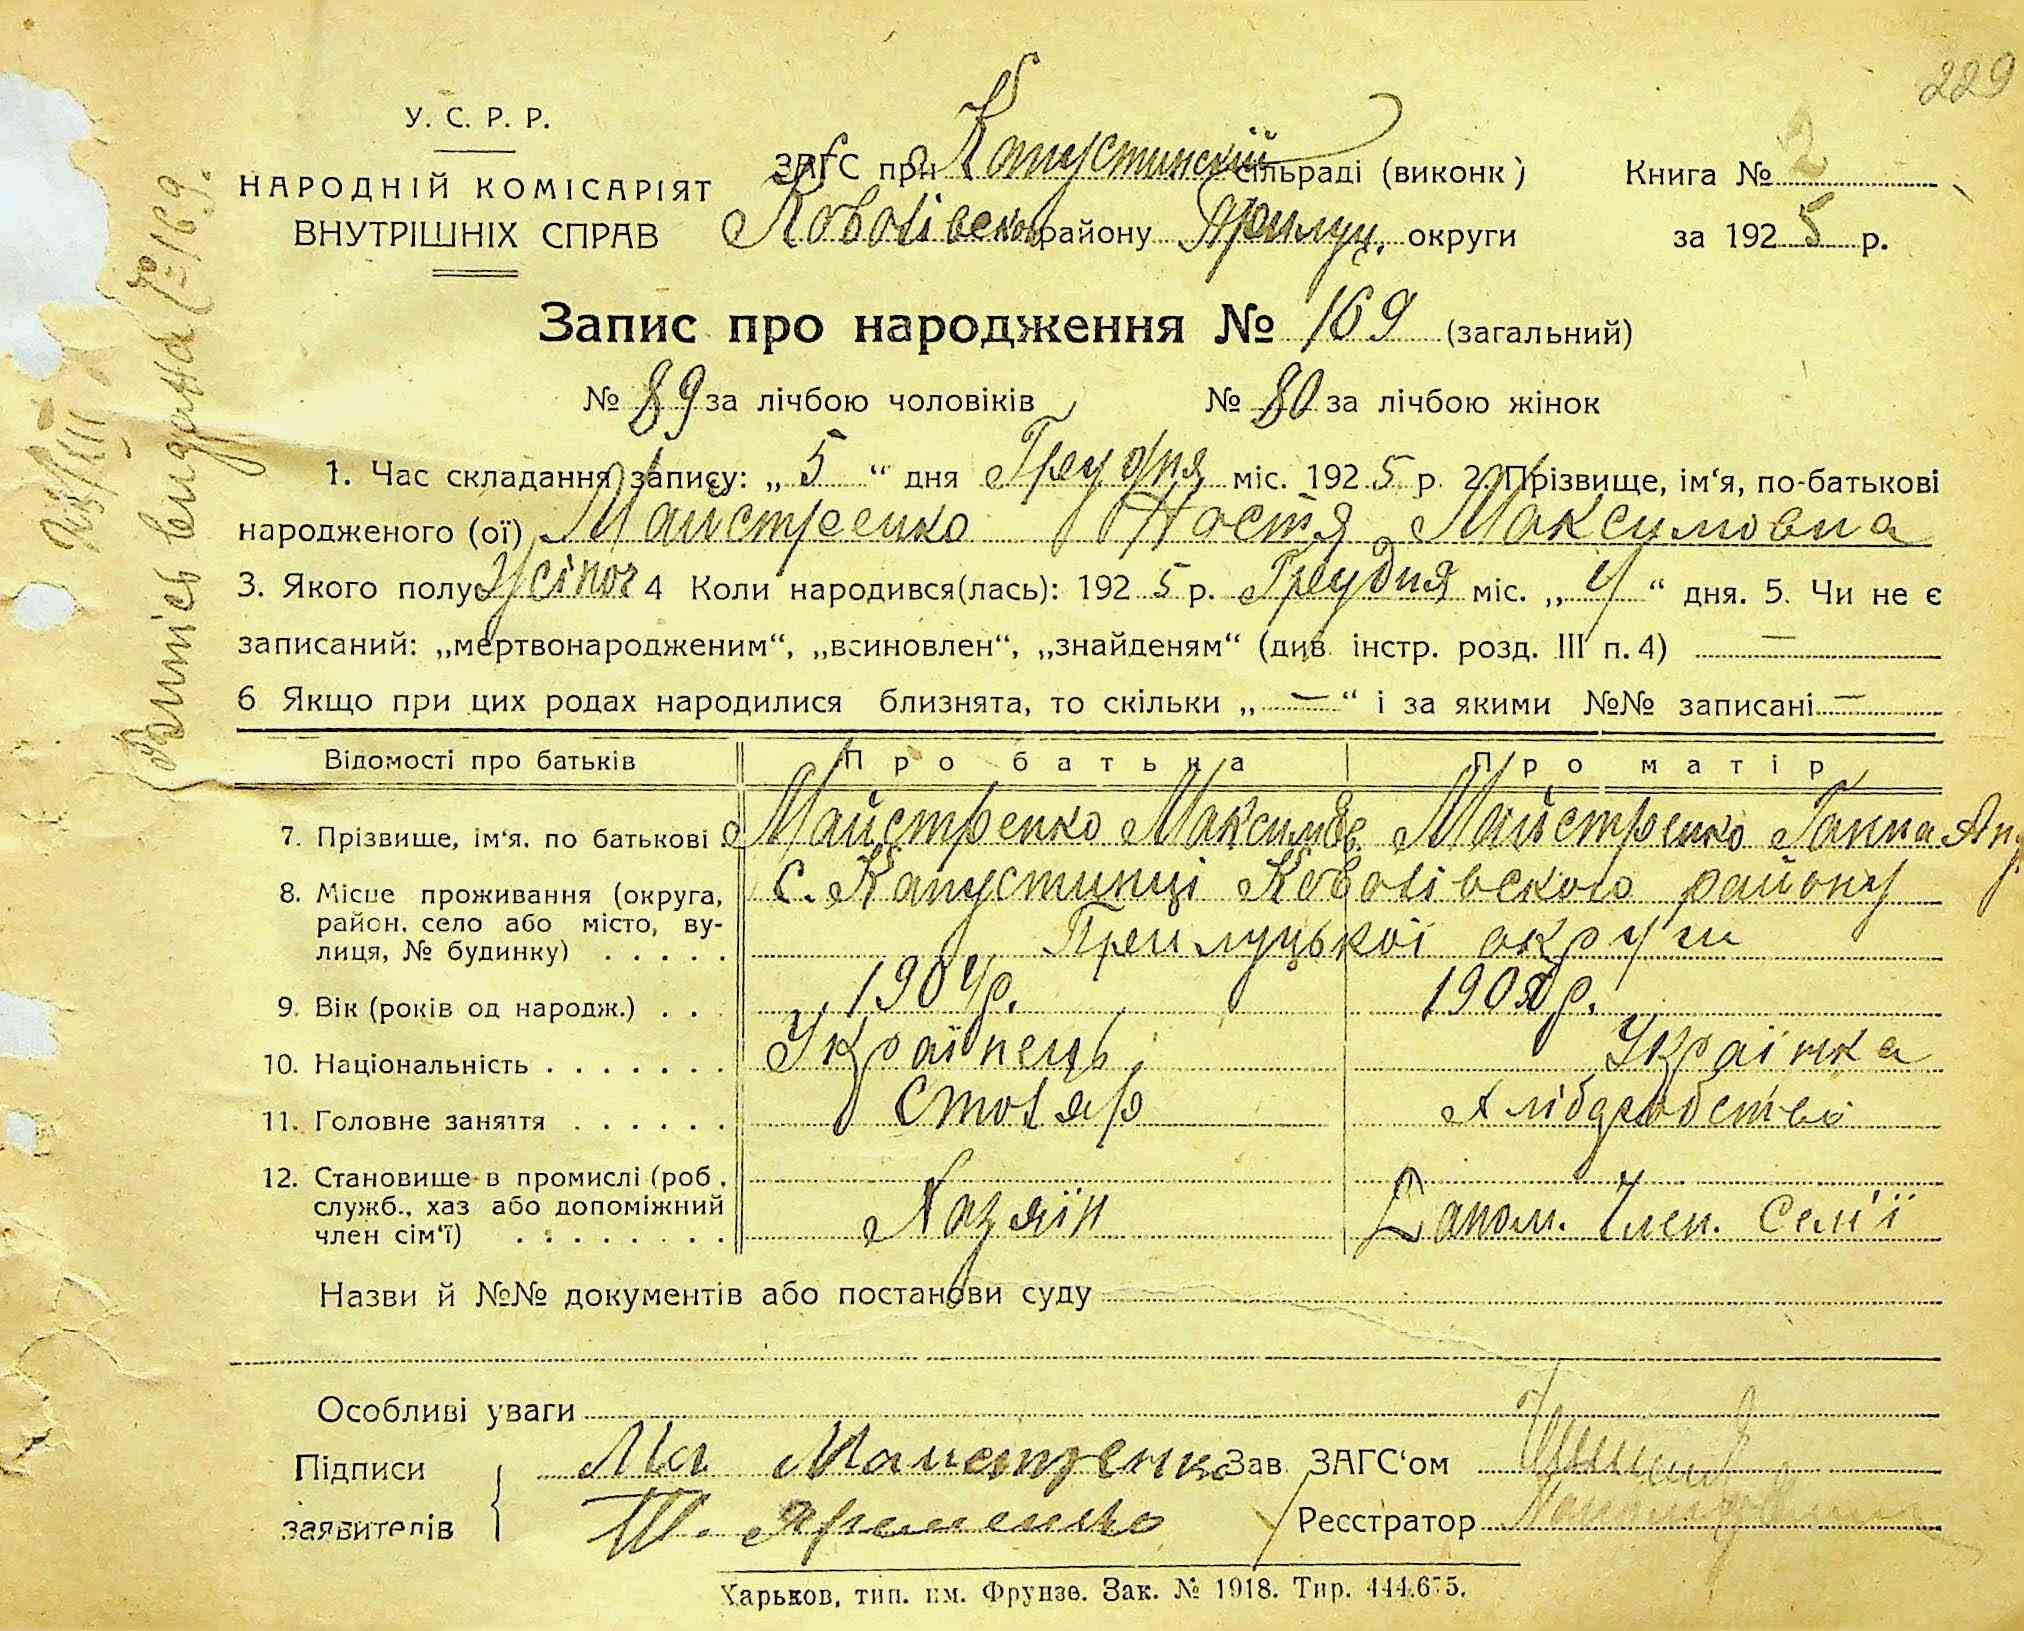 229
У. С. Р. Р.
НАРОДНІЙ КОМІСАРІЯТ
ВНУТРІШНІХ СПРАВ
ЗАГС при Капустинскій сільраді (виконк)
районy Прилуц. округи
Книга № 2
за 1925 р.
Запис про народження № 169 (загальний)
№ 89 за лічбою чоловіків № 80 за лічбою жінок
1. Час складання запису: „ 5 “ дня Грудня міс. 1925 р. 2. Прізвище, ім‘я, по-батькові
народженого (ої) Майстренко Настя Максимовна
3. Якого полу жіноч 4 Коли народився(лась): 1925 р. Грудня міс. „ 4 “ дня. 5. Чи не є
записаний: „мертвонародженим“, „всиновлен“, „знайденям“ (див. інстр. розд. III п. 4) —
6 Якщо при цих родах народилися близнята, то скільки „ — “ і за якими №№ записані —
Відомості про батьків Про батька Про матір
7. Прізвище, ім‘я. по батькові Майстренко Максим Майстренко Ганна Анд
8. Місце проживання (округа, с. Капустинці районy
район, село або місто, ву- Прилуцької округи
лиця, № будинку) . . . . .
9. Вік (років од народж.) . . . 1904р.
10. Національність . . . . . . . Українець Українка
11. Головне заняття . . . . . . Столяр Хліборобство
12. Становище в промислі (роб.,
служб., хаз або допоміжний Хазяїн Допом. Член. Сем'ї
член сім‘ї) . . . . . . . .
Назви й №№ документів або постанови суду
Особливі уваги
Підписи Майстренко Зав. ЗАГС‘ом
заявителів Яременко Реєстратор
Харьков, тип. им. Фрунзе. Зак. № 1918. Тир. 444.675.
Випись видана № 169.